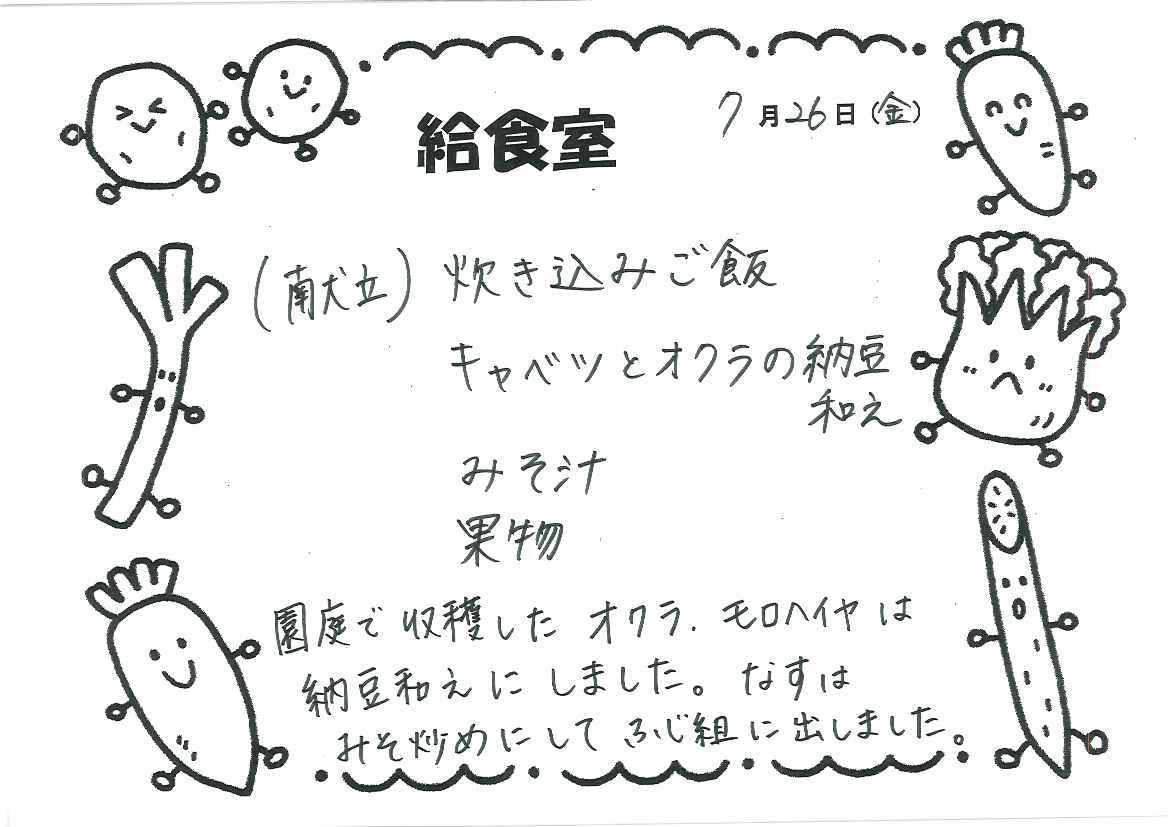 給食室
7月26日(金)
(南犬立) 炊き込みご飯
キャベツとオクラの納豆
和え
みそ汁
果物
園庭で収穫した オクラ.モロヘイヤは
納豆和えに しました。なすは
みそ炒めにして ふじ組に出しました。